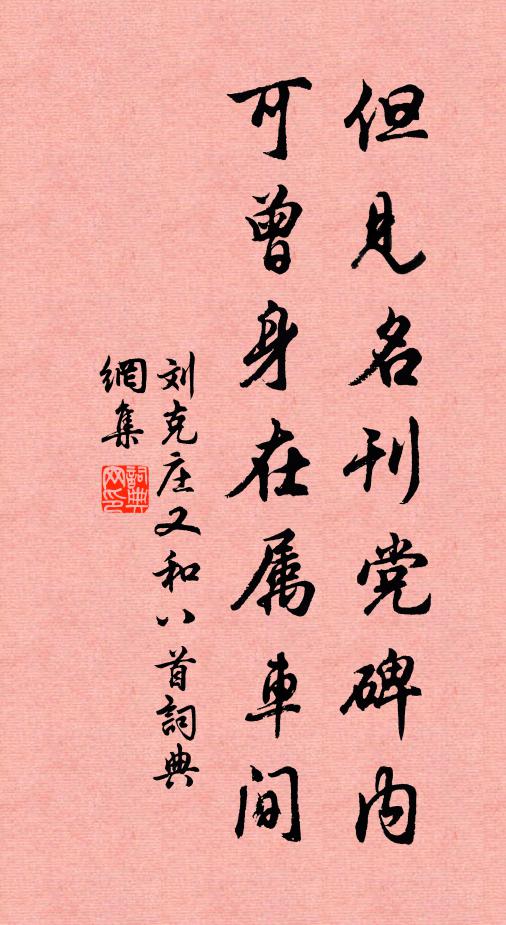 但见名刊党碑内
可曾身在属車间
刘克庄又和八首詞典
網集
詞典
网印